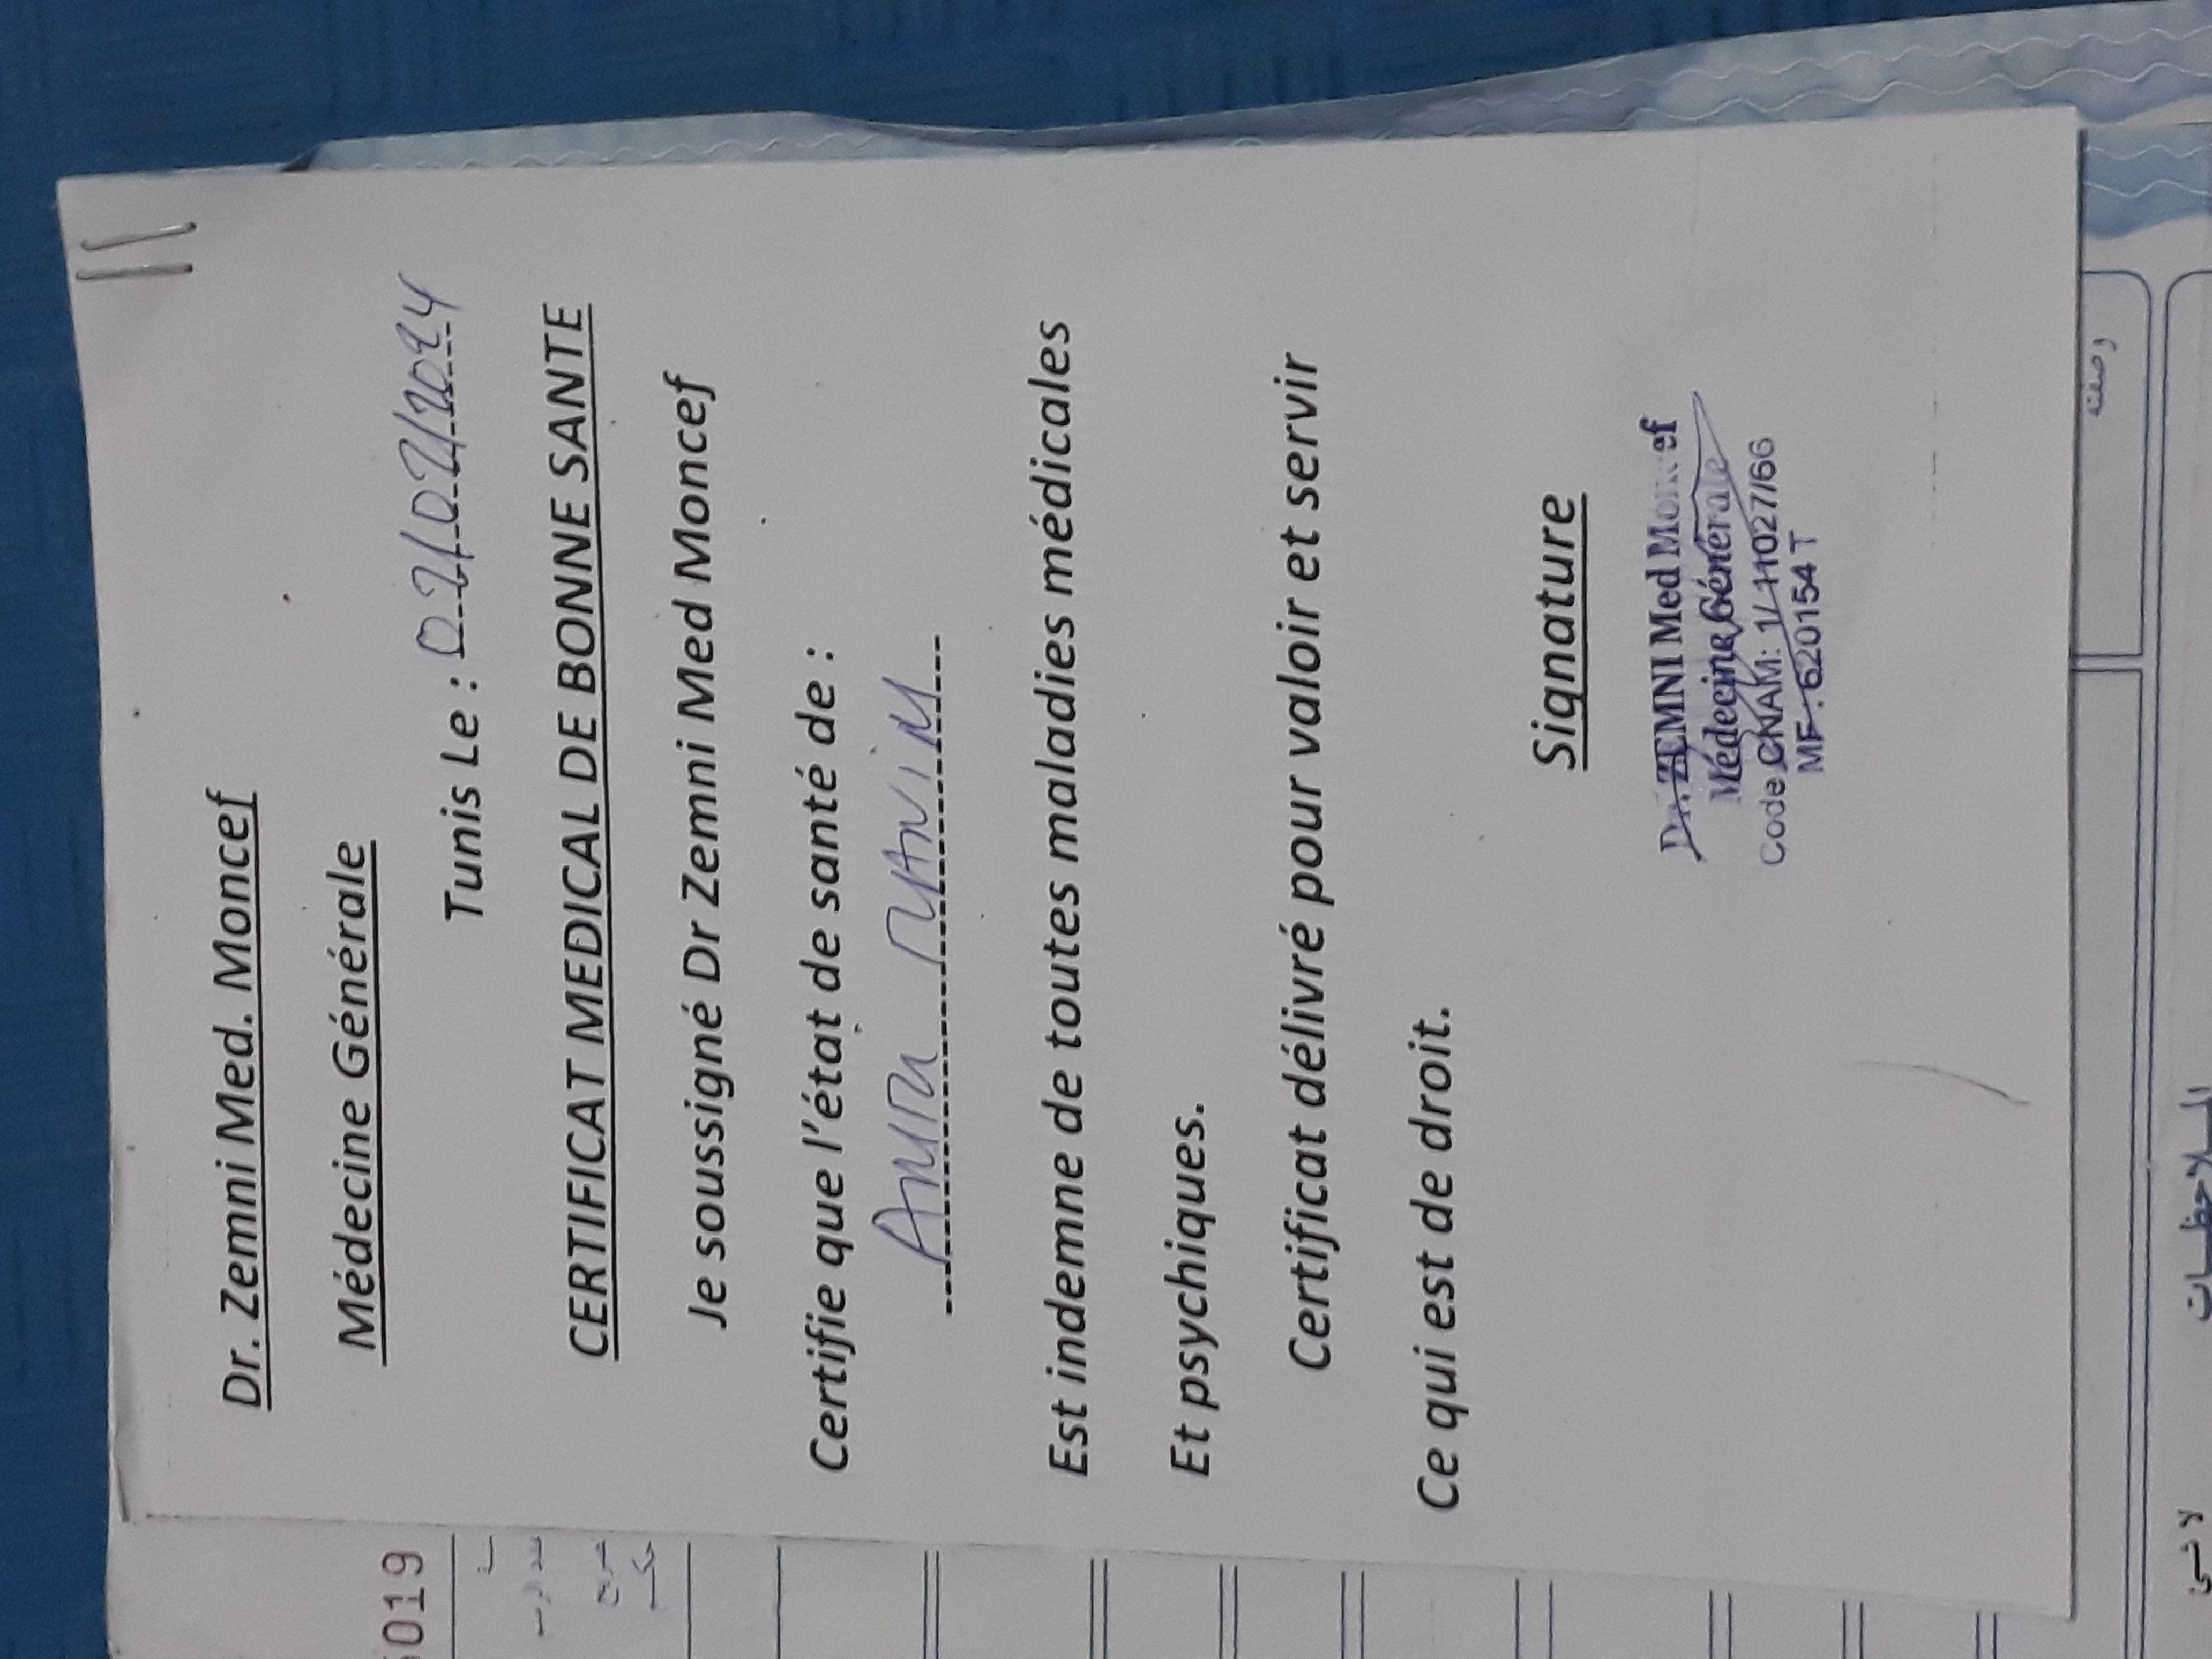 Dr. Zemni Med. Moncef
Médecine Générale
Tunis Le : 02/02/2024
CERTIFICAT MEDICAL DE BONNE SANTE
Je soussigné Dr Zemni Med Moncef
Certifie que l'état de santé de :
Est indemne de toutes maladies médicales
Et psychiques.
Certificat délivré pour valoir et servir
Ce qui est de droit.
Signature
Dr. ZEMNI Med Moncef
Médecine Générale
Code CNAM: 1/11027/66
MF: 620154 T
6019
وصفة
الملاحظات